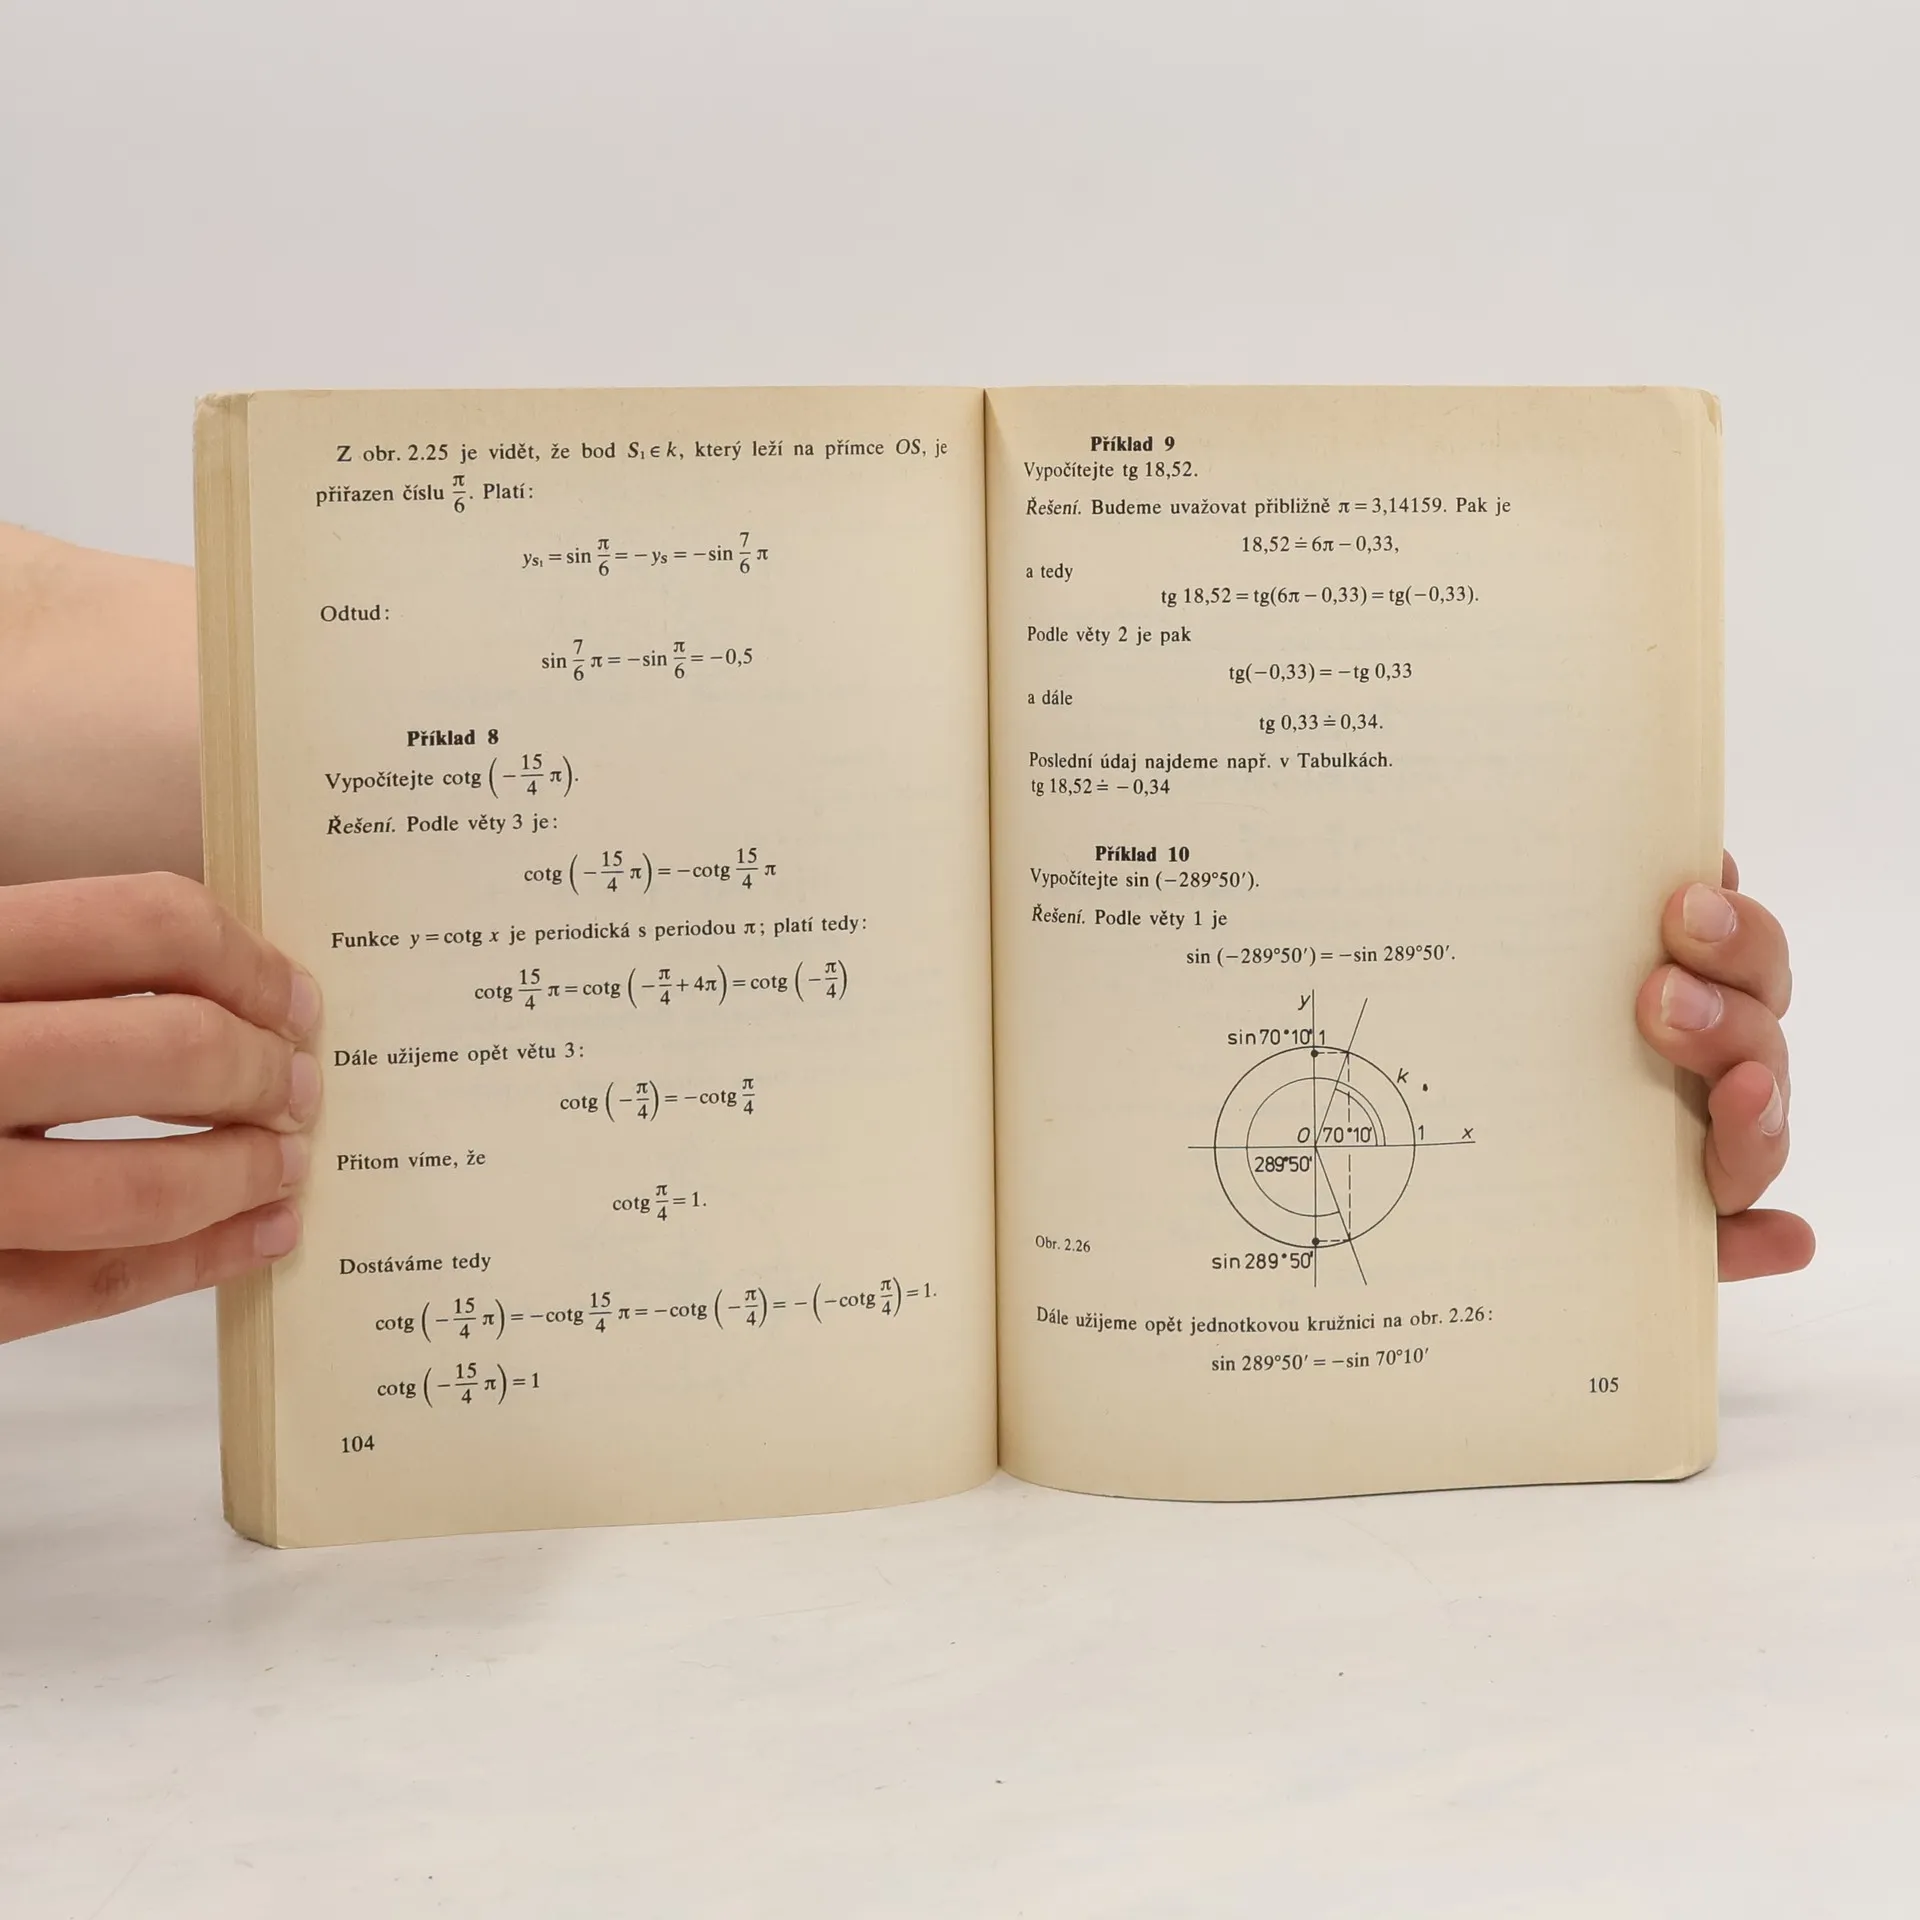 Z obr. 2.25 je vidět, že bod S₁ ∈ k, který leží na přímce OS, je
přiřazen číslu π/6. Platí:
y_S₁ = sin π/6 = −y_S = −sin 7/6 π
Odtud:
sin 7/6 π = −sin π/6 = −0,5
Příklad 8
Vypočítejte cotg (−15/4 π).
Řešení. Podle věty 3 je:
cotg (−15/4 π) = −cotg 15/4 π
Funkce y = cotg x je periodická s periodou π; platí tedy:
cotg 15/4 π = cotg (−π/4 + 4π) = cotg (−π/4)
Dále užijeme opět větu 3:
cotg (−π/4) = −cotg π/4
Přitom víme, že
cotg π/4 = 1.
Dostáváme tedy
cotg (−15/4 π) = −cotg 15/4 π = −cotg (−π/4) = −(−cotg π/4) = 1.
cotg (−15/4 π) = 1
104
Příklad 9
Vypočítejte tg 18,52.
Řešení. Budeme uvažovat přibližně π = 3,14159. Pak je
18,52 ≐ 6π − 0,33,
a tedy
tg 18,52 = tg(6π − 0,33) = tg(−0,33).
Podle věty 2 je pak
tg(−0,33) = −tg 0,33
a dále
tg 0,33 ≐ 0,34.
Poslední údaj najdeme např. v Tabulkách.
tg 18,52 ≐ −0,34
Příklad 10
Vypočítejte sin (−289°50′).
Řešení. Podle věty 1 je
sin (−289°50′) = −sin 289°50′.
y
sin 70°10′ 1
k
O 70°10′ 1 x
289°50′
Obr. 2.26
sin 289°50′
Dále užijeme opět jednotkovou kružnici na obr. 2.26:
sin 289°50′ = −sin 70°10′
105